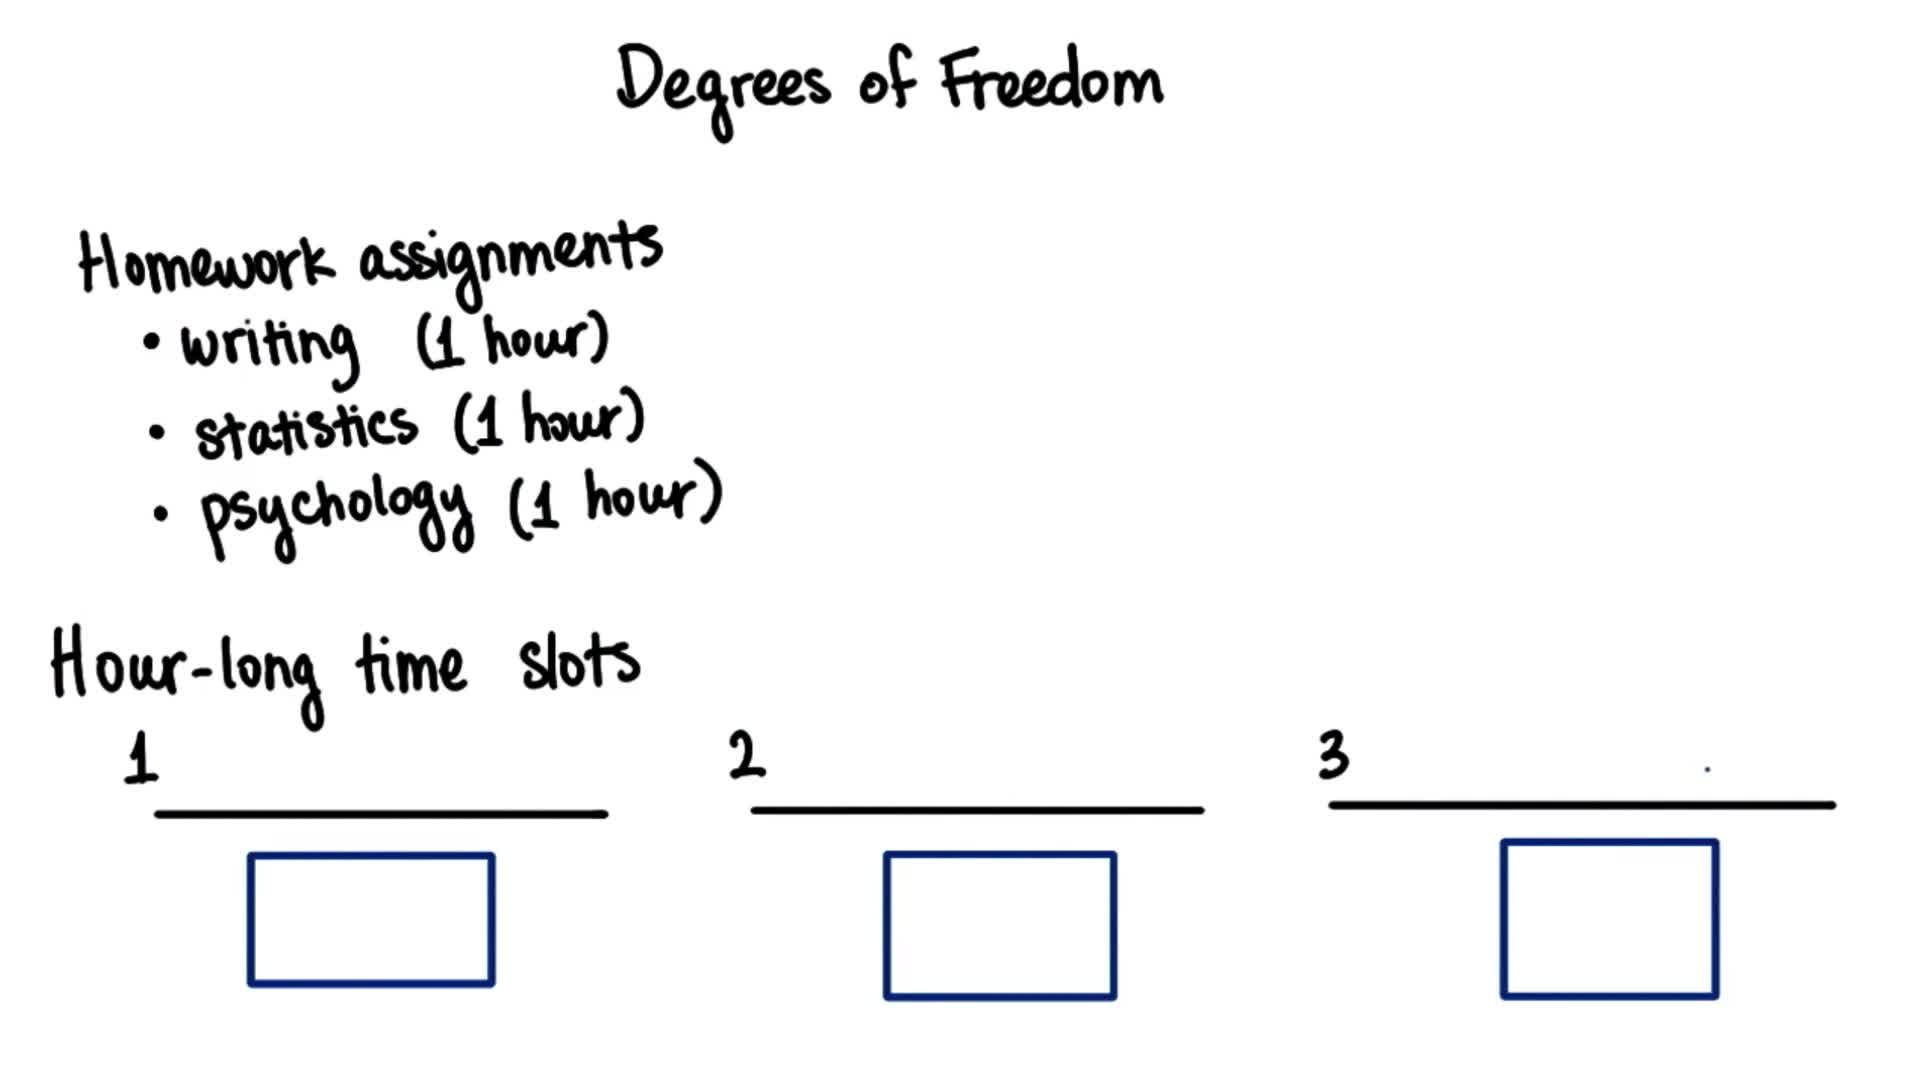 Degrees of Freedom
Homework assignments
• writing (1 hour)
• statistics (1 hour)
• psychology (1 hour)
Hour-long time slots
1 2 3